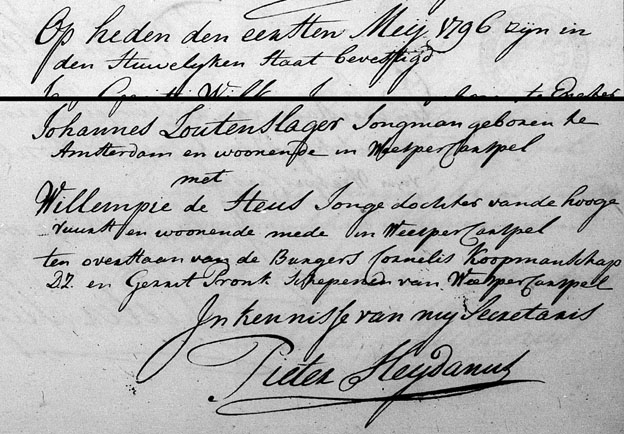 Op heden den eersten Meij 1796 zijn in
den Huwelyken Staat bevestigd
Johannes Loutenslager Jongman geboren te
Amsterdam en woonende in Weesper Carspel
met
Willempie de Heus Jonge dochter van de hooge
vuurst en woonende mede in Weesper Carspel
ten overstaan van de Burgers Cornelis Koopmanschap
DZ. en Gerrit Pronk Schepenen van Weesper Carspel
In kennisse van my Secretaris
Pieter Heydanus